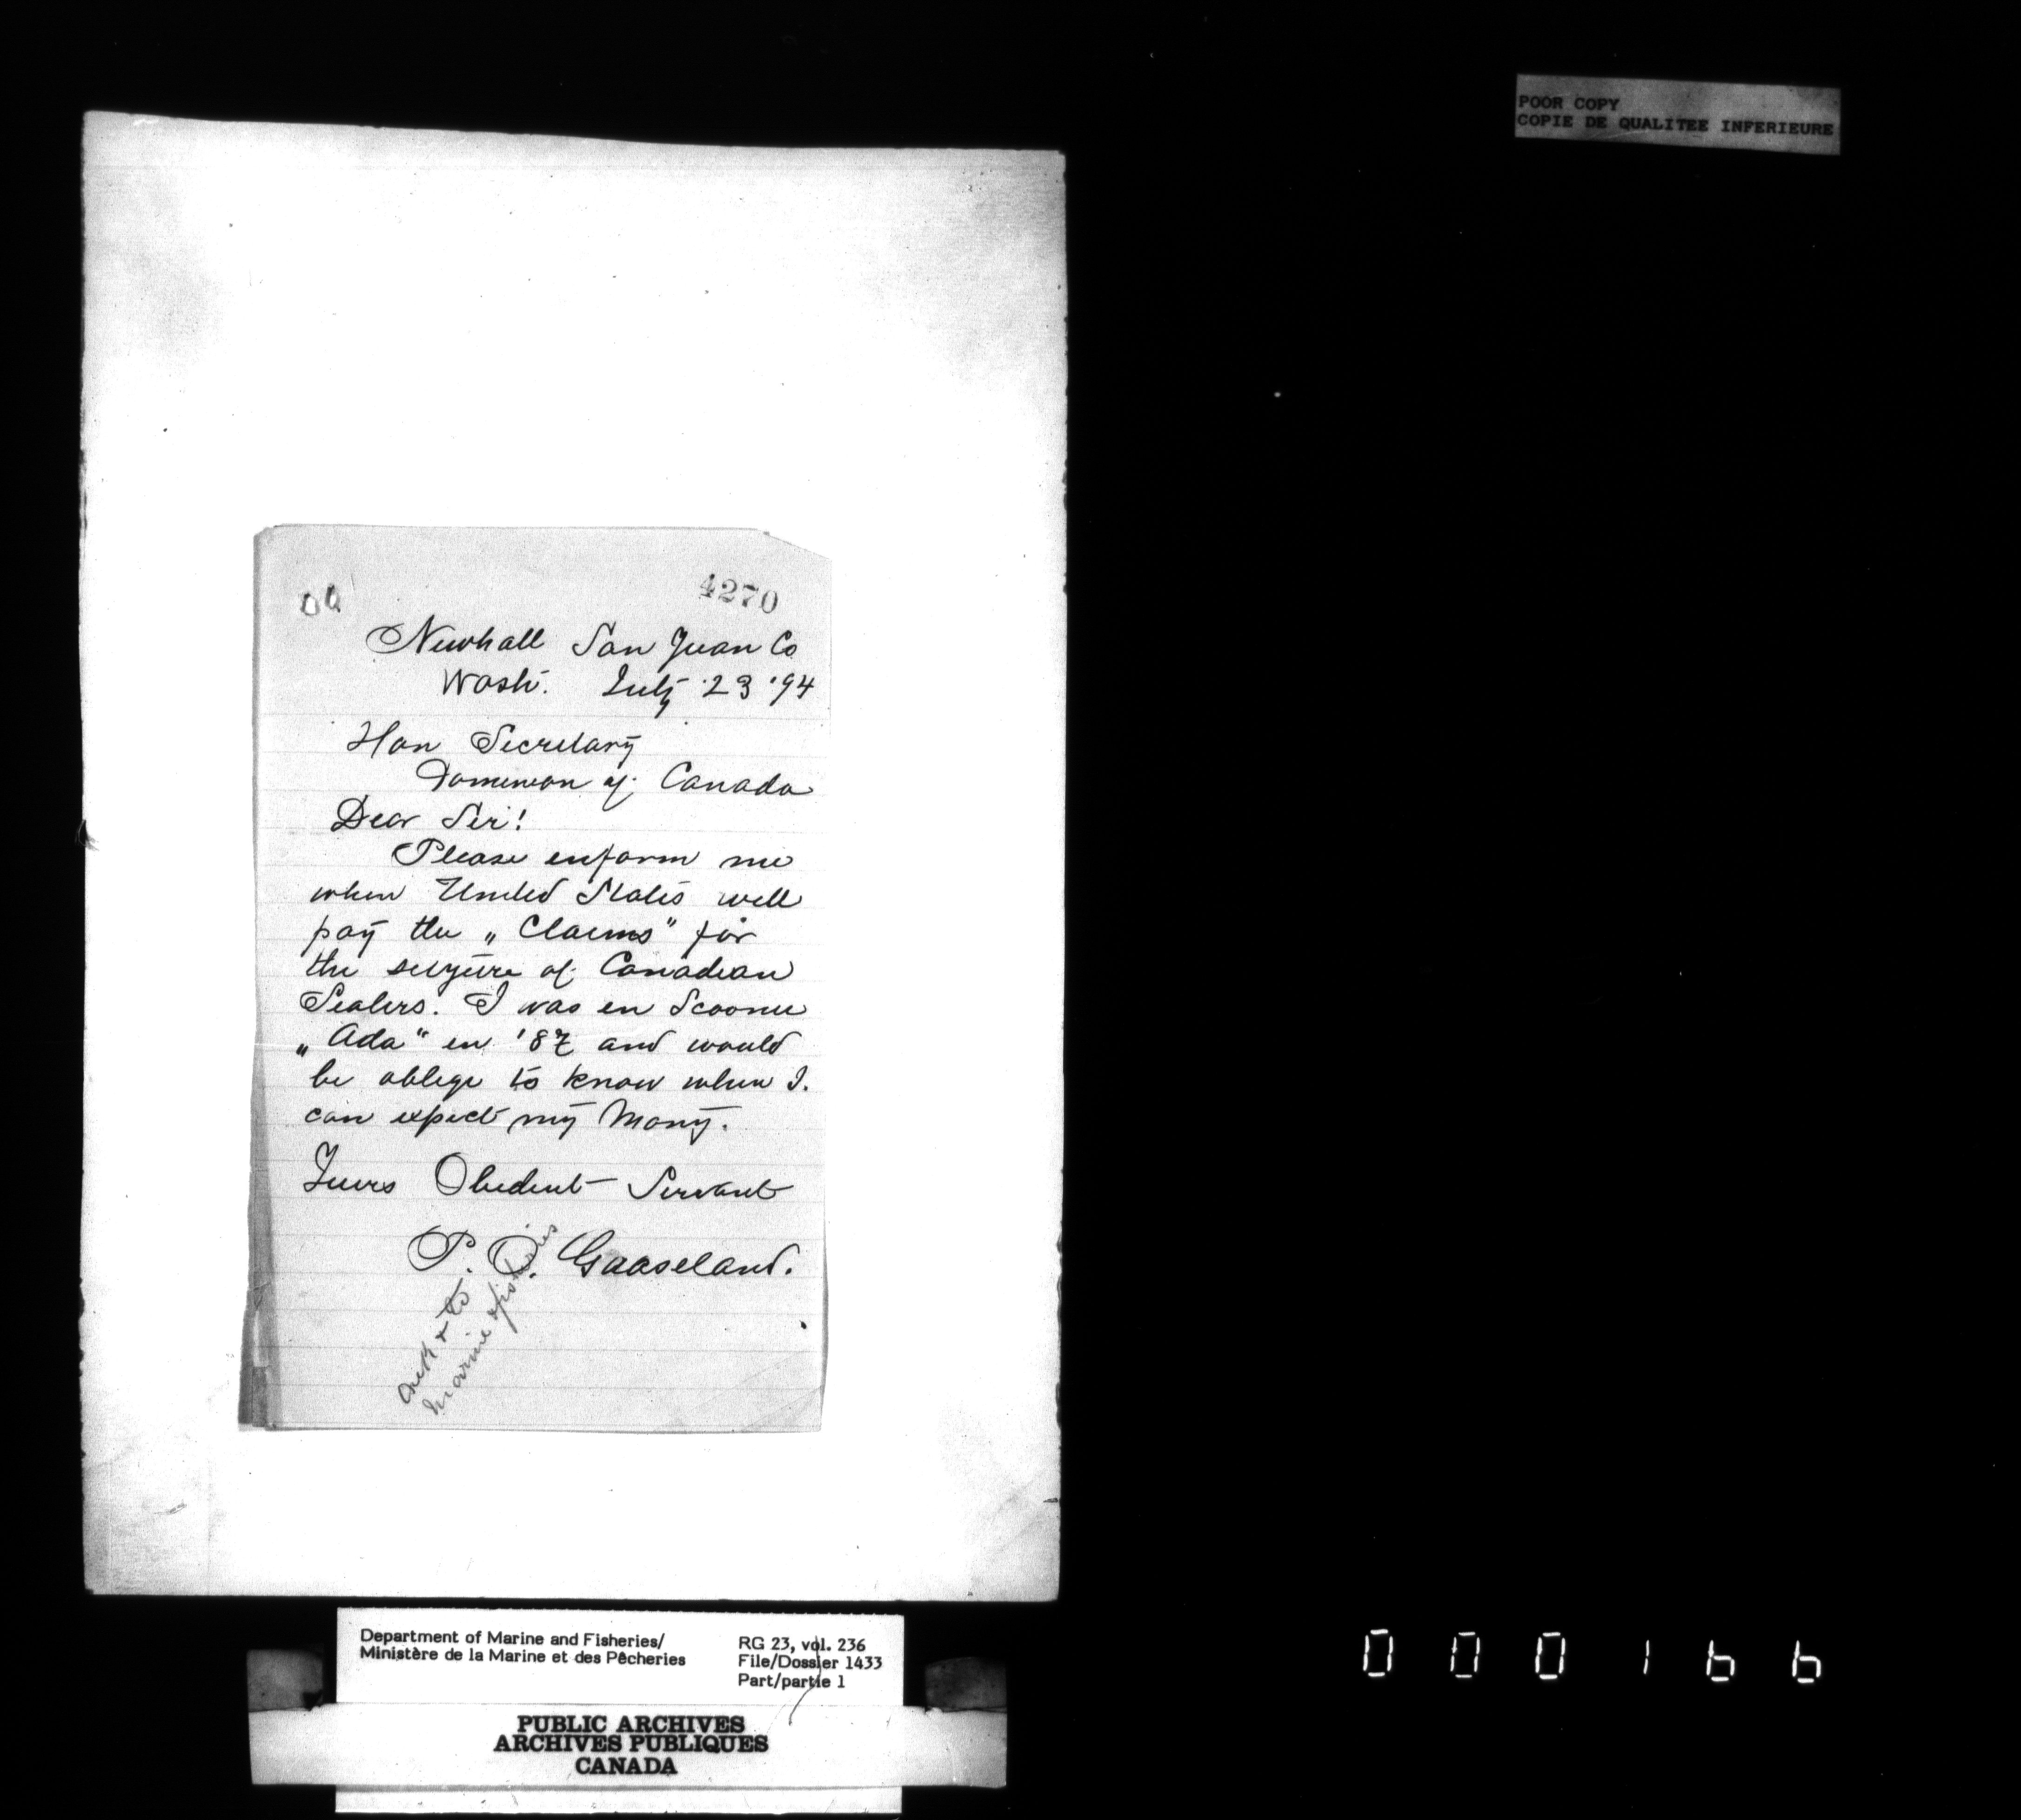 POOR COPY
COPIE DE QUALITEE INFERIEURE
4270
Newhall San Juan Co
Wash. July 23 '94
Hon Secretary
Dominion of Canada
Dear Sir!
Please inform me
when United States will
pay the „ Claims" for
the seizure of Canadian
Sealers. I was in Scooner
„ Ada " in '87 and would
be oblige to know when I.
can expect my Mony.
Yours Obedient Servant
P. O. Gaaseland.
ack & to
Marine & fisheries
Department of Marine and Fisheries/
Ministère de la Marine et des Pêcheries
RG 23, vol. 236
File/Dossier 1433
Part/partie 1
PUBLIC ARCHIVES
ARCHIVES PUBLIQUES
CANADA
000166